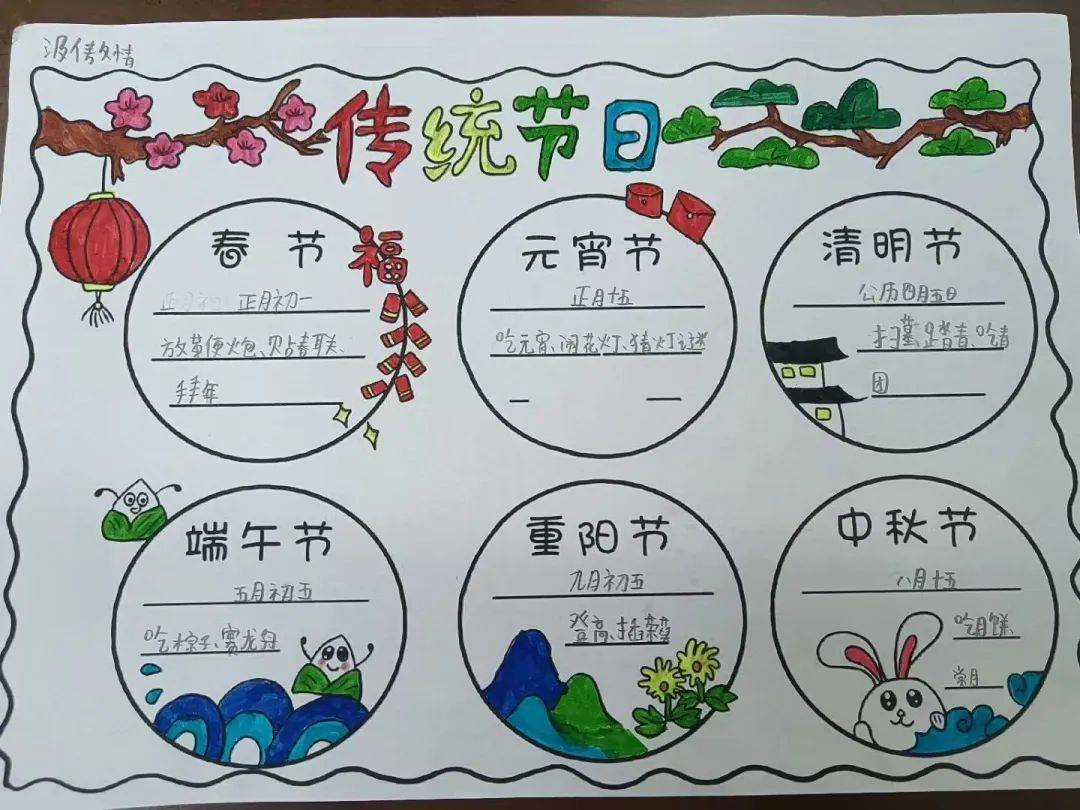 传统节日
春节
福
正月初一
放鞭炮、贴春联、
拜年
元宵节
正月十五
吃元宵、闹花灯、猜灯谜
清明节
公历四月五日
扫墓、踏青、吃青
团
端午节
五月初五
吃粽子、赛龙舟
重阳节
九月初五
登高、插茱萸
中秋节
八月十五
吃月饼、
赏月